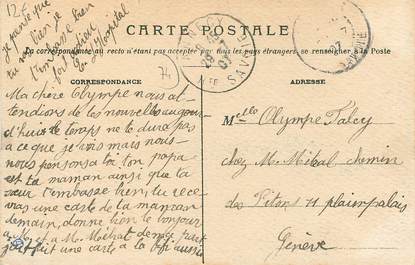 12E
je pense que
tu vas bien je
t'embrasse bien
fort
CARTE POSTALE
La correspondance au recto n'étant pas acceptée par tous les pays étrangers, se renseigner à la Poste
CORRESPONDANCE
ADRESSE
74
29
07
SAVOIE
Ma chère Olympe nous at-
tendions de tes nouvelles aujour
d'hui le temps ne te dure pas
a ce que je vois mais nous
nous pensons a toi ton papa
et ta maman ainsi que ta
sœur t'embrasse bien, tu rece
vras une carte de ta maman
demain, donne bien le bonjour
a M.
fait une carte a la
Melle Olympe
chez M. chemin
des Pitons 11 plainpalais
Genève